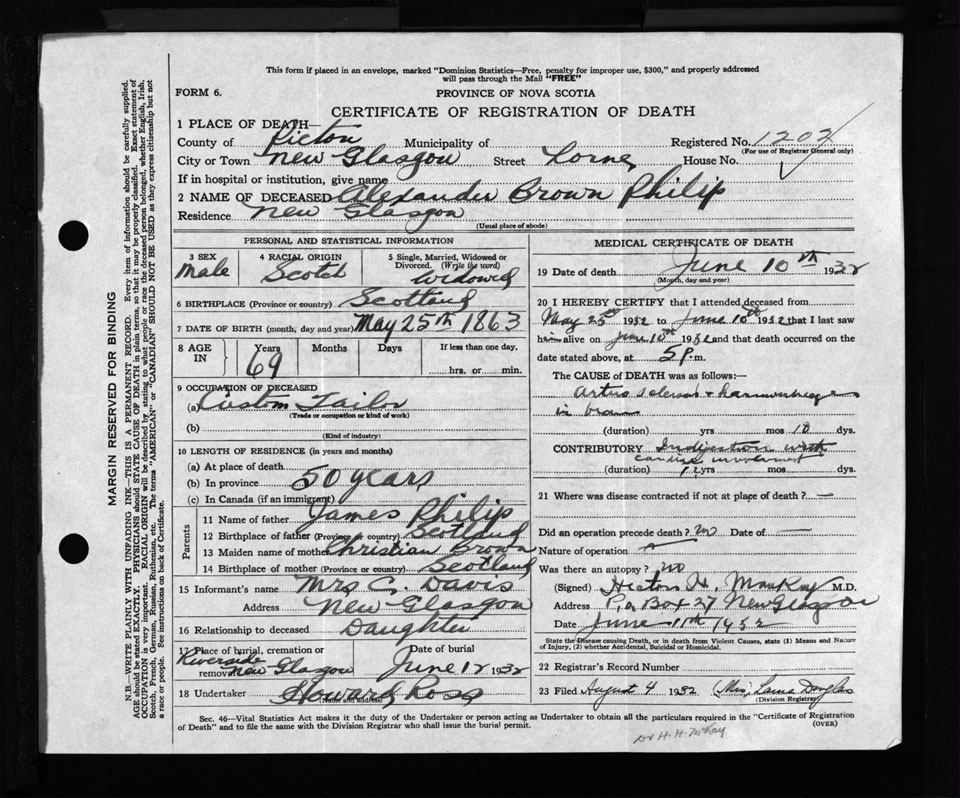 This form if placed in an envelope, marked "Dominion Statistics—Free, penalty for improper use, $300," and properly addressed
will pass through the Mail "FREE"
FORM 6.
PROVINCE OF NOVA SCOTIA
CERTIFICATE OF REGISTRATION OF DEATH
1 PLACE OF DEATH—
County of Pictou Municipality of Registered No. 1207
(For use of Registrar General only)
City or Town New Glasgow Street Lorne House No.
If in hospital or institution, give name
2 NAME OF DECEASED Alexander Brown Philip
Residence New Glasgow
(Usual place of abode)
PERSONAL AND STATISTICAL INFORMATION
3 SEX 4 RACIAL ORIGIN 5 Single, Married, Widowed or
Divorced. (Write the word)
Male Scotch Widowed
6 BIRTHPLACE (Province or country) Scotland
7 DATE OF BIRTH (month, day and year) May 25th 1863
8 AGE IN Years Months Days If less than one day.
69 hrs. or min.
9 OCCUPATION OF DECEASED
(a) Custom Tailor
(Trade or occupation or kind of work)
(b)
(Kind of industry)
10 LENGTH OF RESIDENCE (in years and months)
(a) At place of death
(b) In province 50 years
(c) In Canada (if an immigrant)
Parents
11 Name of father James Philip
12 Birthplace of father (Province or country) Scotland
13 Maiden name of mother Christian Brown
14 Birthplace of mother (Province or country) Scotland
15 Informant's name Mrs C. Davis
Address New Glasgow
16 Relationship to deceased Daughter
17 Place of burial, cremation or removal Date of burial
Riverside New Glasgow June 12 1932
18 Undertaker Howard Ross
(Name and address)
MEDICAL CERTIFICATE OF DEATH
19 Date of death June 10th 1932
(Month, day and year)
20 I HEREBY CERTIFY that I attended deceased from
May 25th 1932 to June 10th 1932 that I last saw
him alive on June 10th 1932 and that death occurred on the
date stated above, at 5 P.m.
The CAUSE of DEATH was as follows:—
in brain
(duration) yrs mos 10 dys.
CONTRIBUTORY Indigestion with
cardiac involvement
(duration) yrs mos dys.
21 Where was disease contracted if not at place of death? —
Did an operation precede death? no Date of —
Nature of operation
Was there an autopsy? no
(Signed) Hector H. MacKay M.D.
Address P.O. Box 27 New Glasgow
Date June 11th 1932
State the Disease causing Death, or in death from Violent Causes, state (1) Means and Nature
of Injury, (2) whether Accidental, Suicidal or Homicidal.
22 Registrar's Record Number
23 Filed August 4 1932 (Mrs) Laura Douglas
(Division Registrar)
Sec. 46—Vital Statistics Act makes it the duty of the Undertaker or person acting as Undertaker to obtain all the particulars required in the "Certificate of Registration
of Death" and to file the same with the Division Registrar who shall issue the burial permit.
(OVER)
Dr H. H. McKay
MARGIN RESERVED FOR BINDING
N.B.—WRITE PLAINLY WITH UNFADING INK—THIS IS A PERMANENT RECORD. Every item of information should be carefully supplied.
AGE should be stated EXACTLY. PHYSICIANS should STATE CAUSE OF DEATH in plain terms, so that it may be properly classified. Exact statement of
OCCUPATION is very important. RACIAL ORIGIN will be described by stating to what people or race the deceased person belonged, whether English, Irish,
Scotch, French, German, Russian, Ruthenian, etc. The terms "AMERICAN" or "CANADIAN" SHOULD NOT BE USED as they express citizenship but not
a race or people. See instructions on back of Certificate.